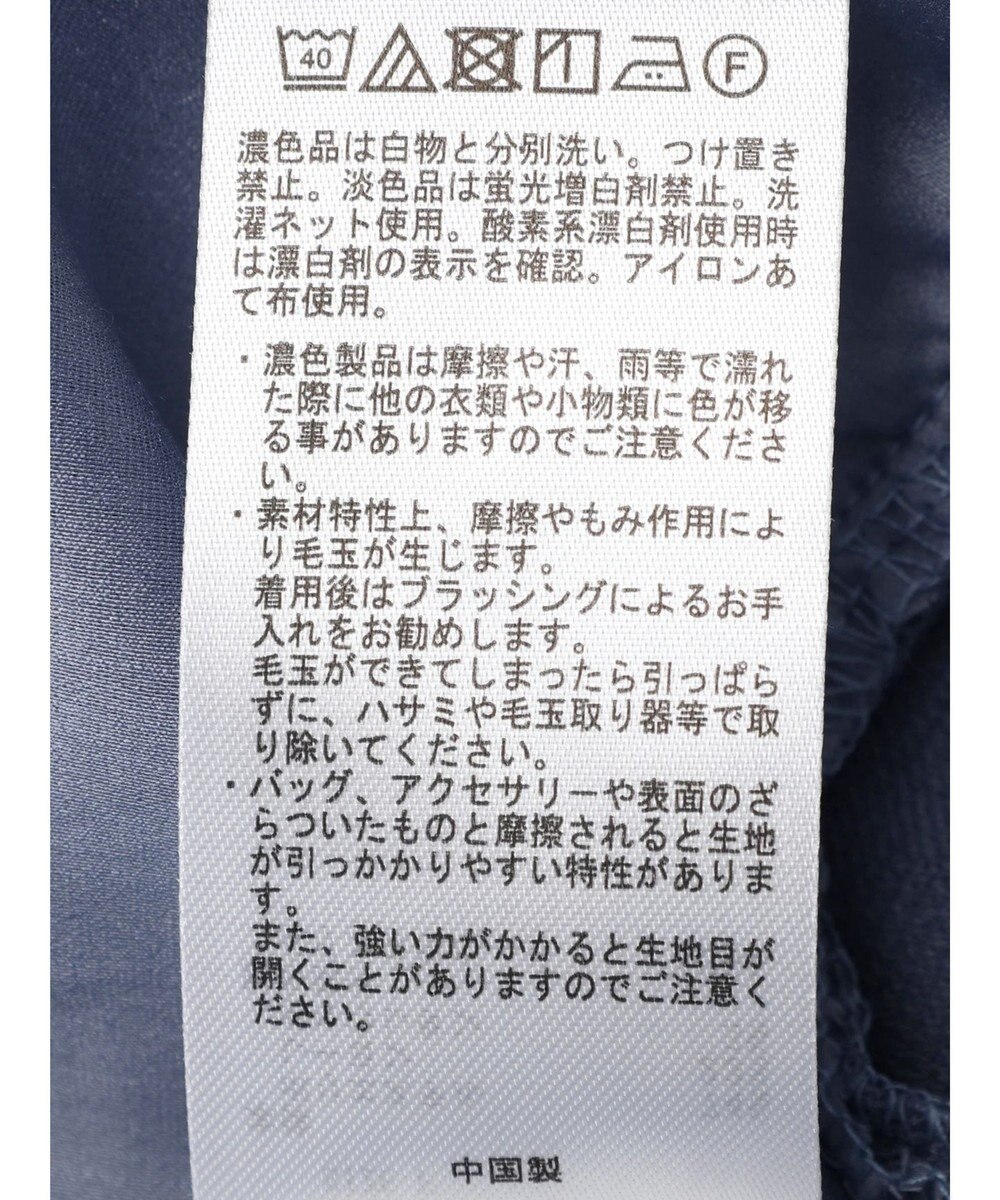 40 F
濃色品は白物と分別洗い。つけ置き
禁止。淡色品は蛍光増白剤禁止。洗
濯ネット使用。酸素系漂白剤使用時
は漂白剤の表示を確認。アイロンあ
て布使用。
・濃色製品は摩擦や汗、雨等で濡れ
た際に他の衣類や小物類に色が移
る事がありますのでご注意くださ
い。
・素材特性上、摩擦やもみ作用によ
り毛玉が生じます。
着用後はブラッシングによるお手
入れをお勧めします。
毛玉ができてしまったら引っぱら
ずに、ハサミや毛玉取り器等で取
り除いてください。
・バッグ、アクセサリーや表面のざ
らついたものと摩擦されると生地
が引っかかりやすい特性がありま
す。
また、強い力がかかると生地目が
開くことがありますのでご注意く
ださい。
中国製